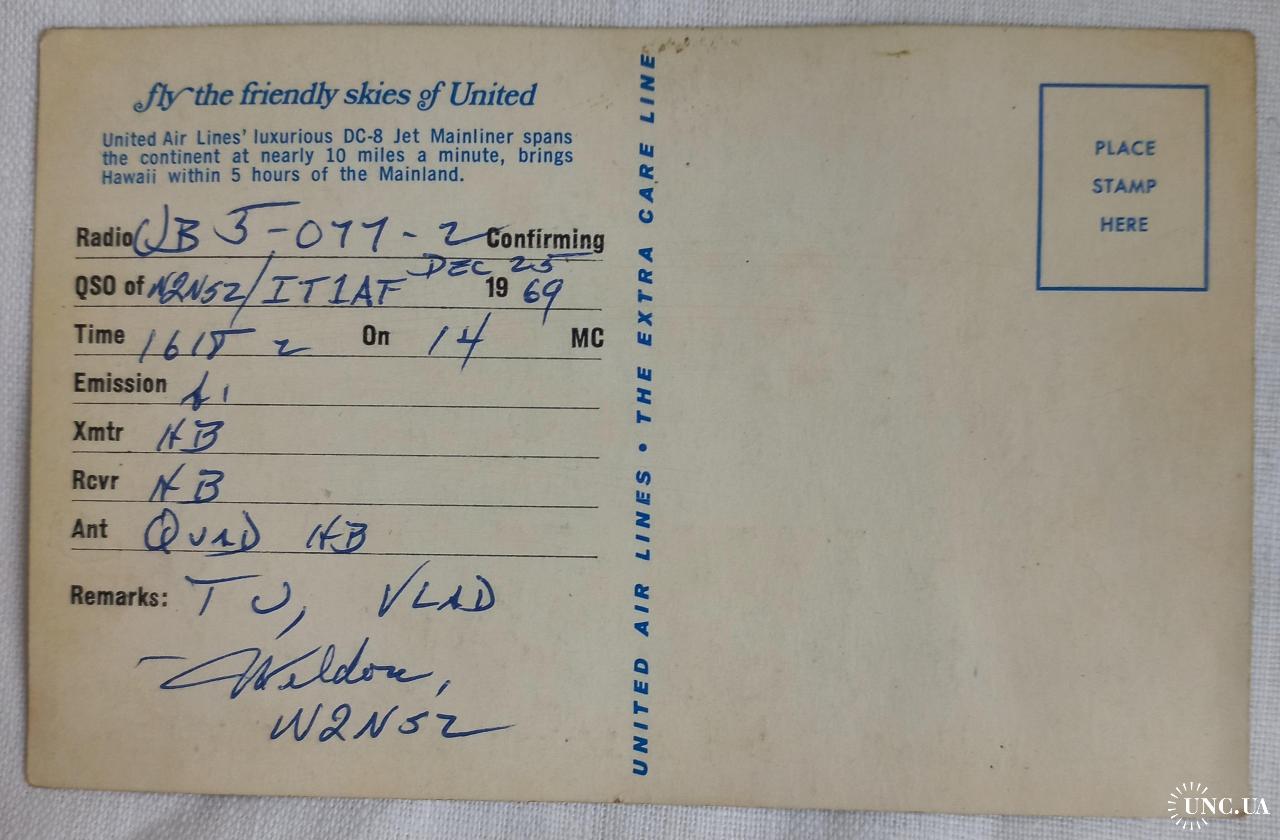 fly the friendly skies of United
United Air Lines' luxurious DC-8 Jet Mainliner spans
the continent at nearly 10 miles a minute, brings
Hawaii within 5 hours of the Mainland.
Radio UB 5-077-2 Confirming
QSO of W2NSZ/IT1AF DEC 25 1969
Time 1615 z On 14 MC
Emission
Xmtr HB
Rcvr HB
Ant QUAD HB
Remarks: TU, VLAD
Weldon,
W2NSZ
UNITED AIR LINES • THE EXTRA CARE LINE
PLACE
STAMP
HERE
UNC.UA